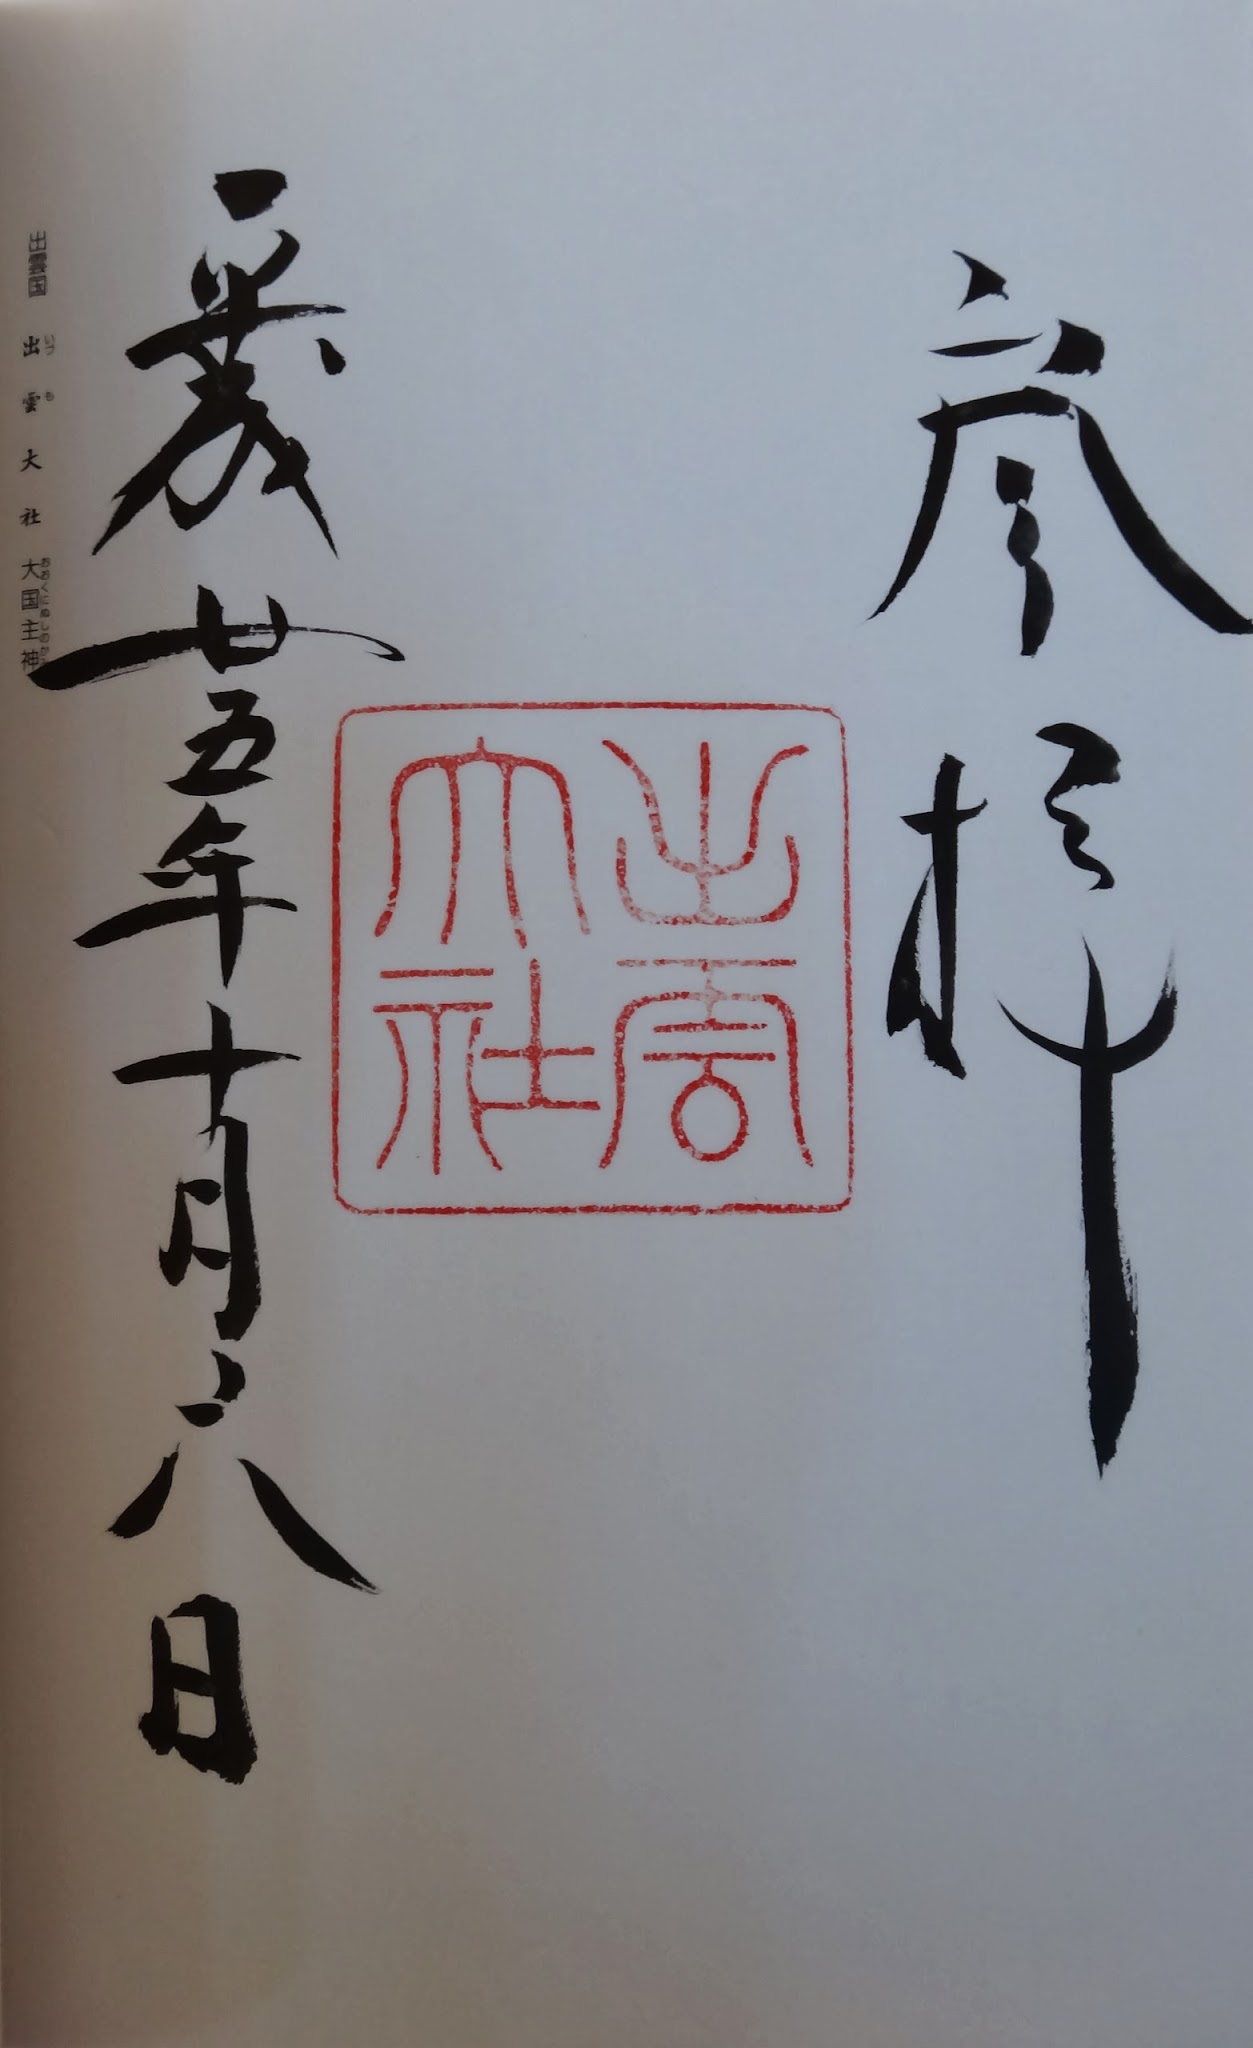 参拝
出雲大社
平成廿五年十月六日
出雲国 出雲大社 大国主神
いづも
おおくにぬしのかみ